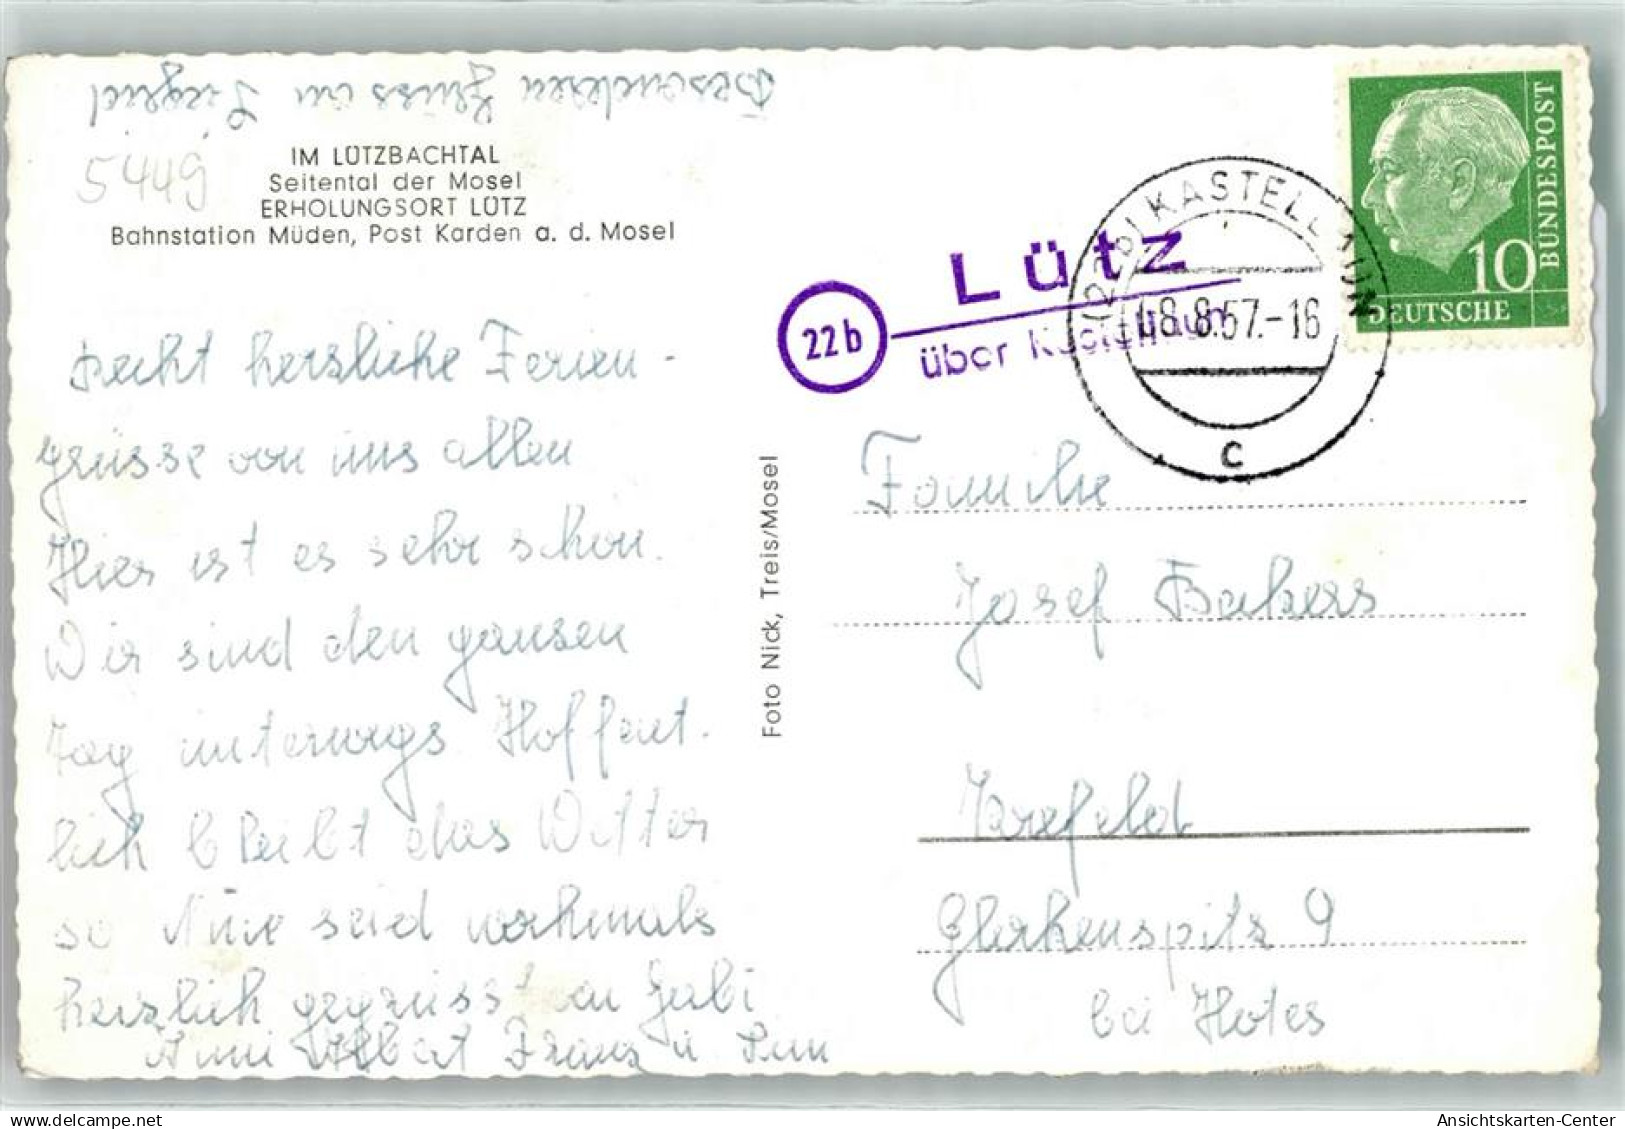 Besonderen Gruss an Siegrid
5449
IM LÜTZBACHTAL
Seitental der Mosel
ERHOLUNGSORT LÜTZ
Bahnstation Müden, Post Karden a. d. Mosel
Recht herzliche Ferien-
grüsse von uns allen
Hier ist es sehr schön.
Wir sind den ganzen
Tag unterwegs Hoffent-
lich bleibt das Wetter
so Nun seid nochmals
herzlich gegrüsst von Gabi
Anni Albert Franz u
Foto Nick, Treis/Mosel
22b
Lütz
über Kastellaun
(22b) KASTELLAUN
18.8.57.-16
c
10
DEUTSCHE
BUNDESPOST
Familie
Josef
Krefeld
9
bei
delcampe.net
Ansichtskarten-Center